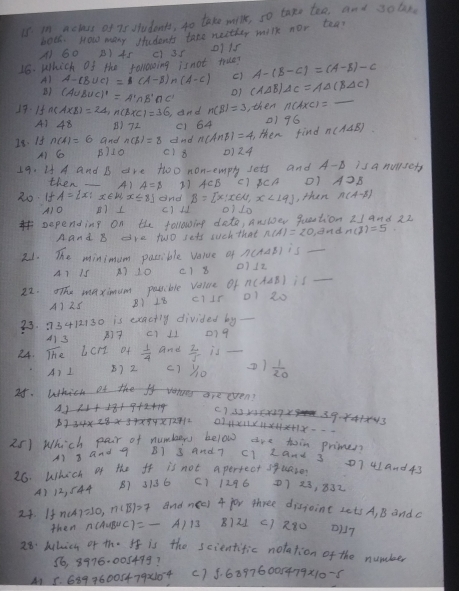 15. In a class of 75 students, 40 take milk, 50 take tea, and 30 take
both. How many students take neither milk nor tea?
A) 60 B) 45 C) 35 D) 15
16. Which of the following is not true?
A) A-(BUC) = (A-B)∩(A-C) C) A-(B-C) = (A-B)-C
B) (AUBUC)' = A'∩B'∩C' D) (AΔB)ΔC = AΔ(BΔC)
17. If n(AXB)=24, n(BXC)=36, and n(B)=3, then n(AXC)= —
A) 48 B) 72 C) 64 D) 96
18. If n(A)=6 and n(B)=8 and n(A∩B)=4, then find n(AΔB).
A) 6 B) 10 C) 8 D) 24
19. If A and B are two non-empty sets and A-B is a null set,
then — A) A=B B) A⊂B C) B⊂A D) A⊃B
20. If A={x: x∈N, x≤8} and B={x: x∈N, x<19}, then n(A-B)
A) 0 B) 1 C) 11 D) 10
# Depending on the following data, answer question 21 and 22
A and B are two sets such that n(A)=20, and n(B)=5.
21. The minimum possible value of n(AΔB) is —
A) 15 B) 10 C) 8 D) 12
22. The maximum possible value of n(AΔB) is —
A) 25 B) 18 C) 15 D) 20
23. 73412130 is exactly divided by —
A) 3 B) 7 C) 11 D) 9
24. The LCM of 1/4 and 2/5 is —
A) 1 B) 2 C) 1/10 D) 1/20
25. Which of the ff values are even?
A) 21+18+9+2+19 C)
B) D)
25) Which pair of numbers below are twin primes?
A) 8 and 9 B) 3 and 7 C) 2 and 3 D) 41 and 43
26. Which of the ff is not a perfect square?
A) 12,544 B) 3136 C) 1296 D) 23,832
27. If n(A)=10, n(B)=7 and n(C) 4 for three disjoint sets A, B and C
then n(AUBUC)= — A) 13 B) 21 C) 280 D) 17
28. Which of the ff is the scientific notation of the number
56,8976.005479?
A) 5.68976005479x10⁻⁴ C) 5.68976005479x10⁻⁵